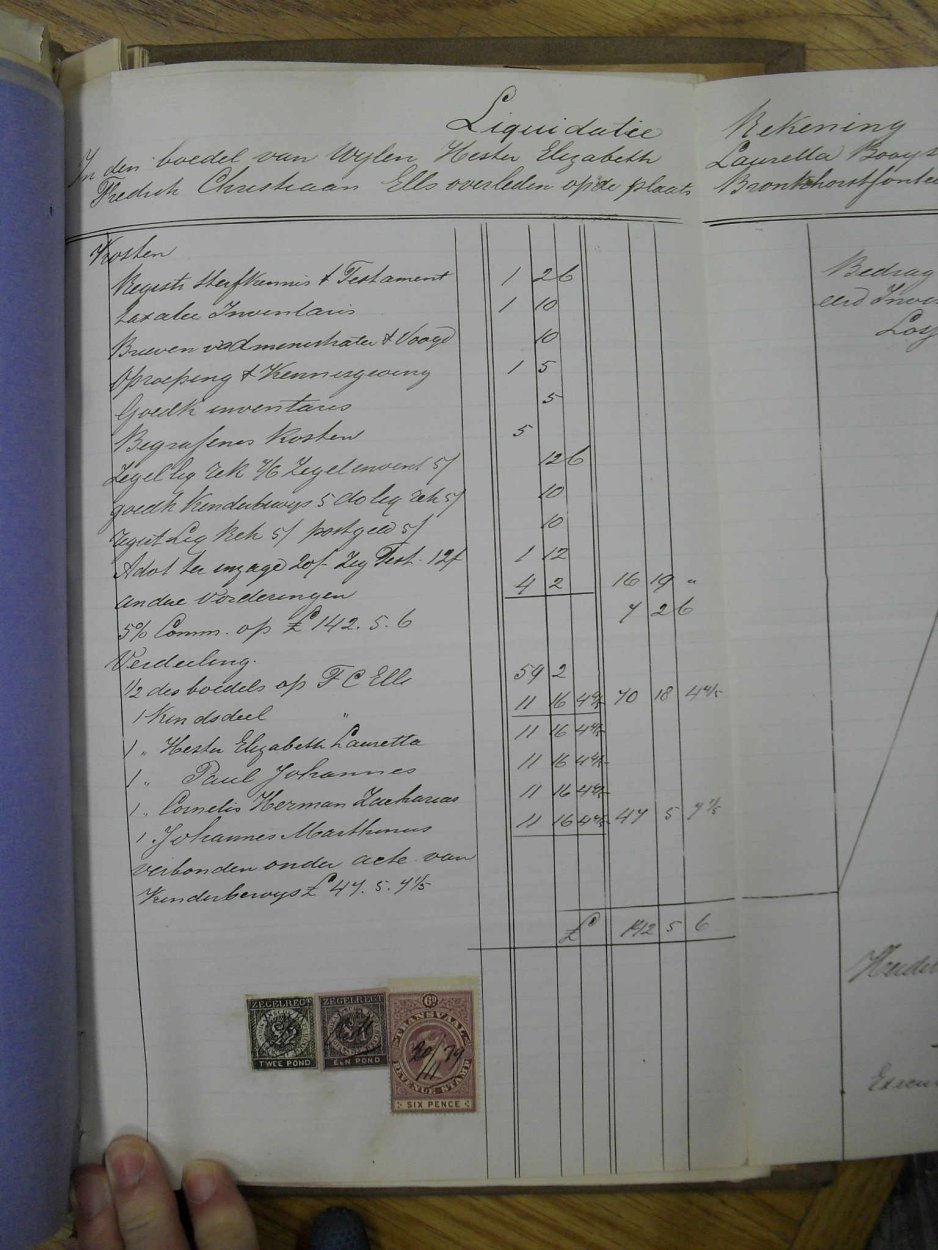 Liquidatie Rekening
In den boedel van Wylen Hester Elizabeth Lauretta Booys
Fredrik Christiaan Ells overleden op de plaats Bronkhorstfontei
Kosten
Registr sterfkennis & Testament 1 2 6
taxatie Inventaris 1 10
Brieven v Administratie & Voogd 10
Oproeping & Kennisgeving 1 5
Goedk inventaris 5
Begrafenis Kosten 5
Zegel liq rek 7/6 Zegel invent 5/ 12 6
goedk Kinderbewys 5 do liq rek 5/ 10
regist Liq Rek 5/ postgeld 5/ 10
Advt ter inzage 20/ Zeg Test. 12/ 1 12
andere Vorderingen 4 2 16 19 "
5% Comm. op £142.5.6 7 2 6
Verdeeling.
1/2 des boedels op F C Ells 59 2
1 Kindsdeel " 11 16 4 4/5 70 18 4 4/5
1 " Hester Elizabeth Lauretta 11 16 4 4/5
1 " Paul Johannes 11 16 4 4/5
1 " Cornelis Herman Zacharias 11 16 4 4/5
1 Johannes Marthinus 11 16 4 4/5 47 5 7 1/5
verbonden onder acte van
Kinderbewys £47.5.7 1/5
£ 142 5 6
Bedrag
eerd Inve
ZEGELREGT
TWEE POND
ZEGELREGT
EEN POND
6D
TRANSVAAL
REVENUE STAMP
SIX PENCE
20/79
Execu